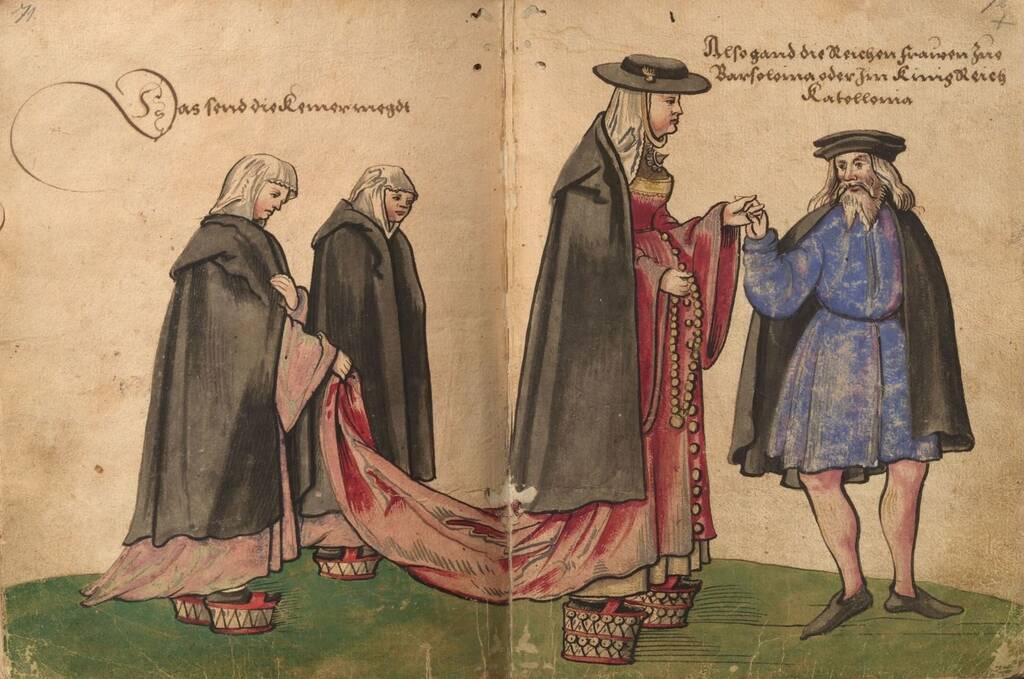 71
Das send die Kemermegdt
Also gand die Reichen frauwen Zuo
Barselonia oder Jm KinigReich
Katellonia